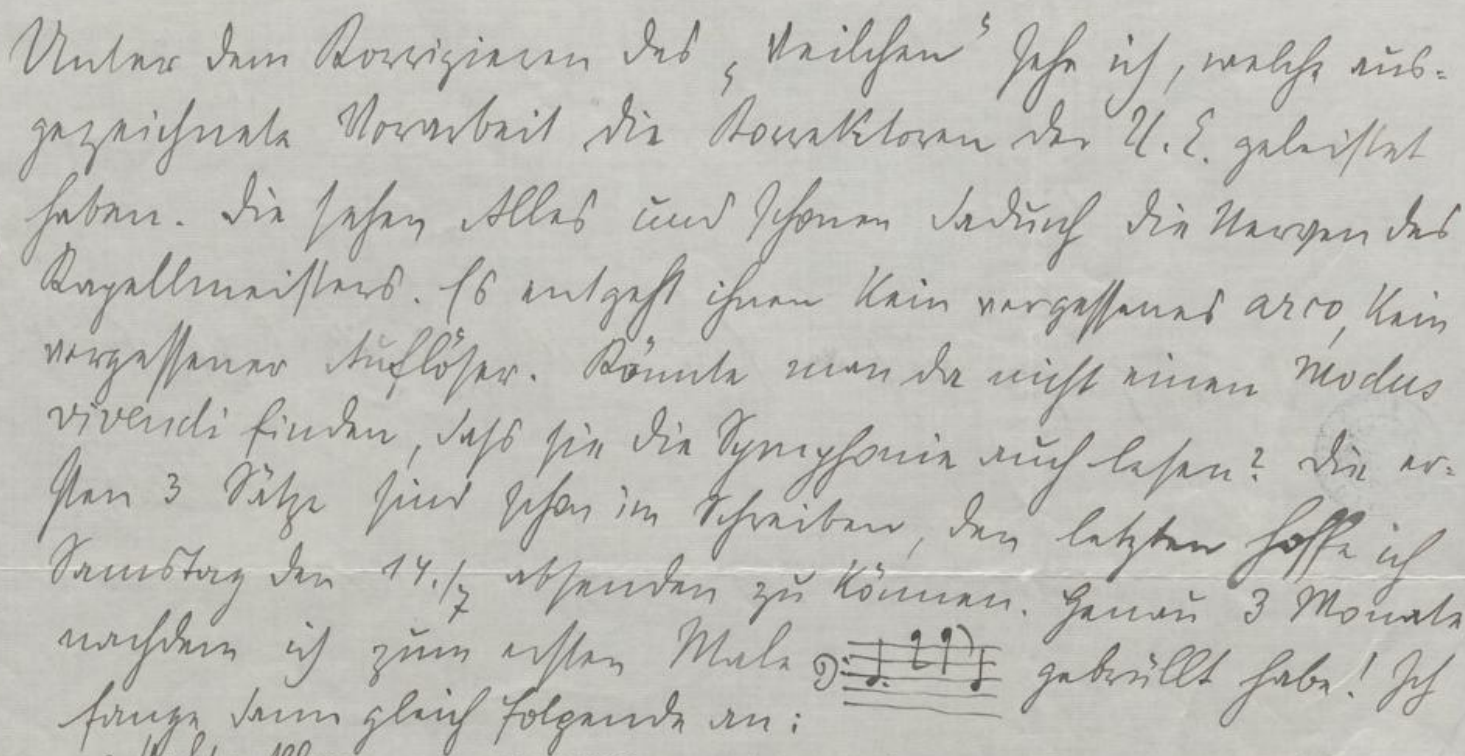 Unter dem Korrigieren des „Veilchen“ sehe ich, welche aus=
gezeichnete Vorarbeit die Korrektoren der U.E. geleistet
haben. Die sehen Alles und schonen dadurch die Nerven des
Kapellmeisters. Es entgeht ihnen kein vergessenes arco, kein
vergessener Auflöser. Könnte man da nicht einen Modus
vivendi finden, dass sie die Symphonie auch lesen? Die er=
sten 3 Sätze sind schon im Schreiben, den letzten hoffe ich
Samstag den 14./7 absenden zu können. Genau 3 Monate
nachdem ich zum ersten Male gebrüllt habe! Ich
fange dann gleich folgende an: